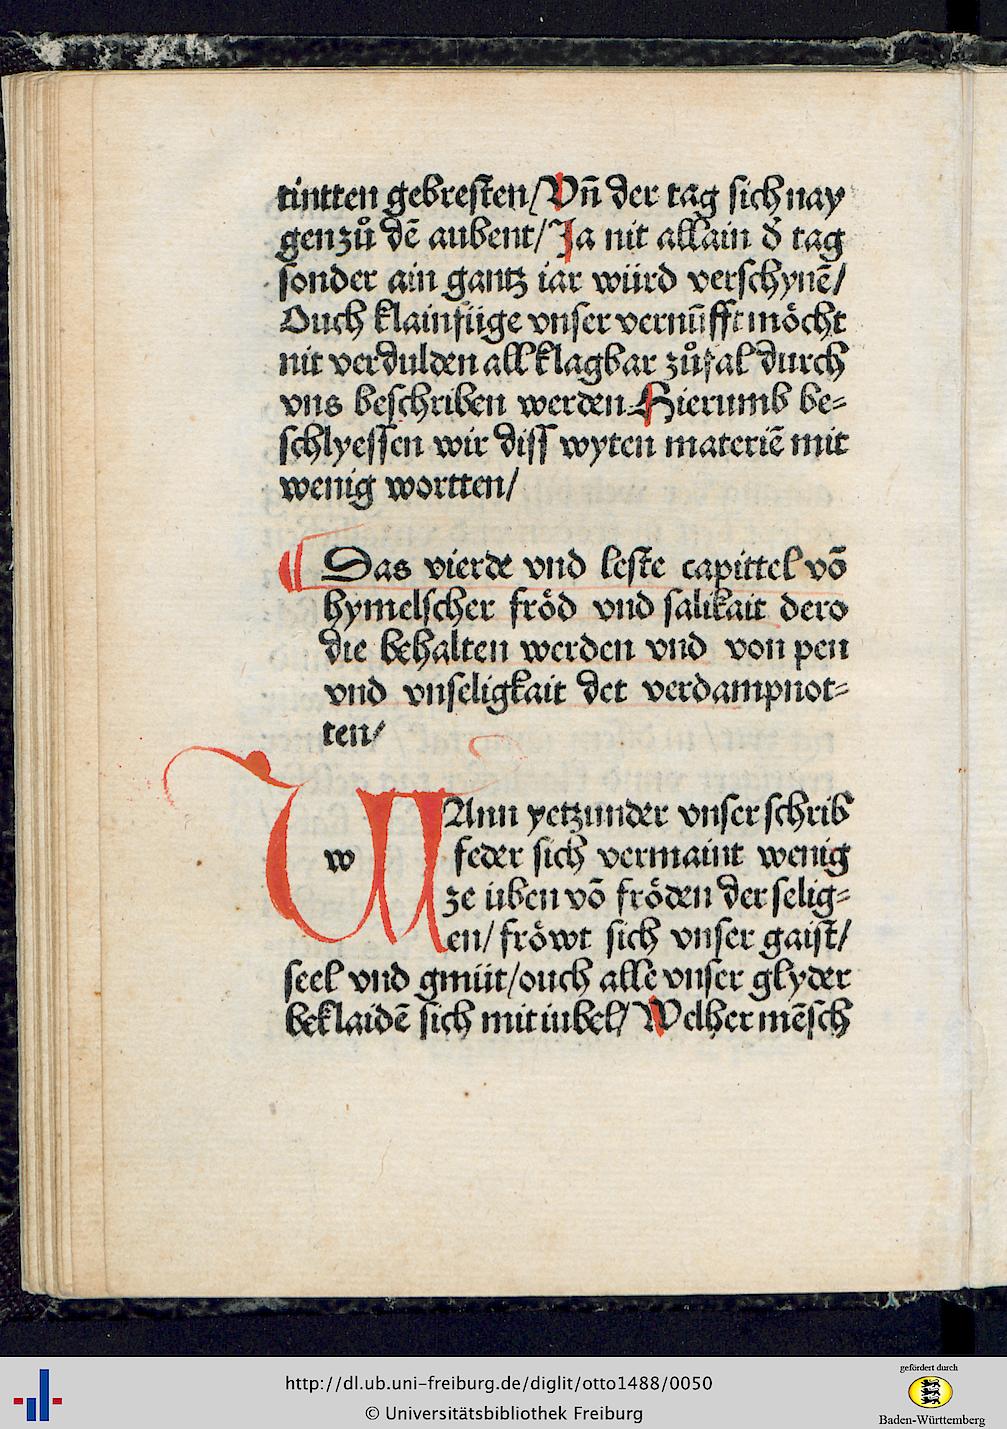 tintten gebresten/ Vn̄ der tag sich nay
gen zů dē aubent/ Ja nit allain d̄ tag
sonder ain gantz iar würd verschynē/
Ouch klainfüge vnser vernūfft möcht
nit verdulden all klagbar zůfal durch
vns beschriben werden. Hierumb be⸗
schlyessen wir diss wyten materiē mit
wenig wortten/
¶ Das vierde vnd leste capittel vō
hymelscher fröd vnd salikait dero
die behalten werden vnd von pen
vnd vnseligkait det verdampnot⸗
ten/
WAnn yetzunder vnser schrib
w feder sich vermaint wenig
ze üben vō fröden der selig⸗
en/ fröwt sich vnser gaist/
seel vnd gmüt/ ouch alle vnser glyder
beklaidē sich mit iubel/ Welher mēsch
http://dl.ub.uni-freiburg.de/diglit/otto1488/0050
© Universitätsbibliothek Freiburg
gefördert durch
Baden-Württemberg